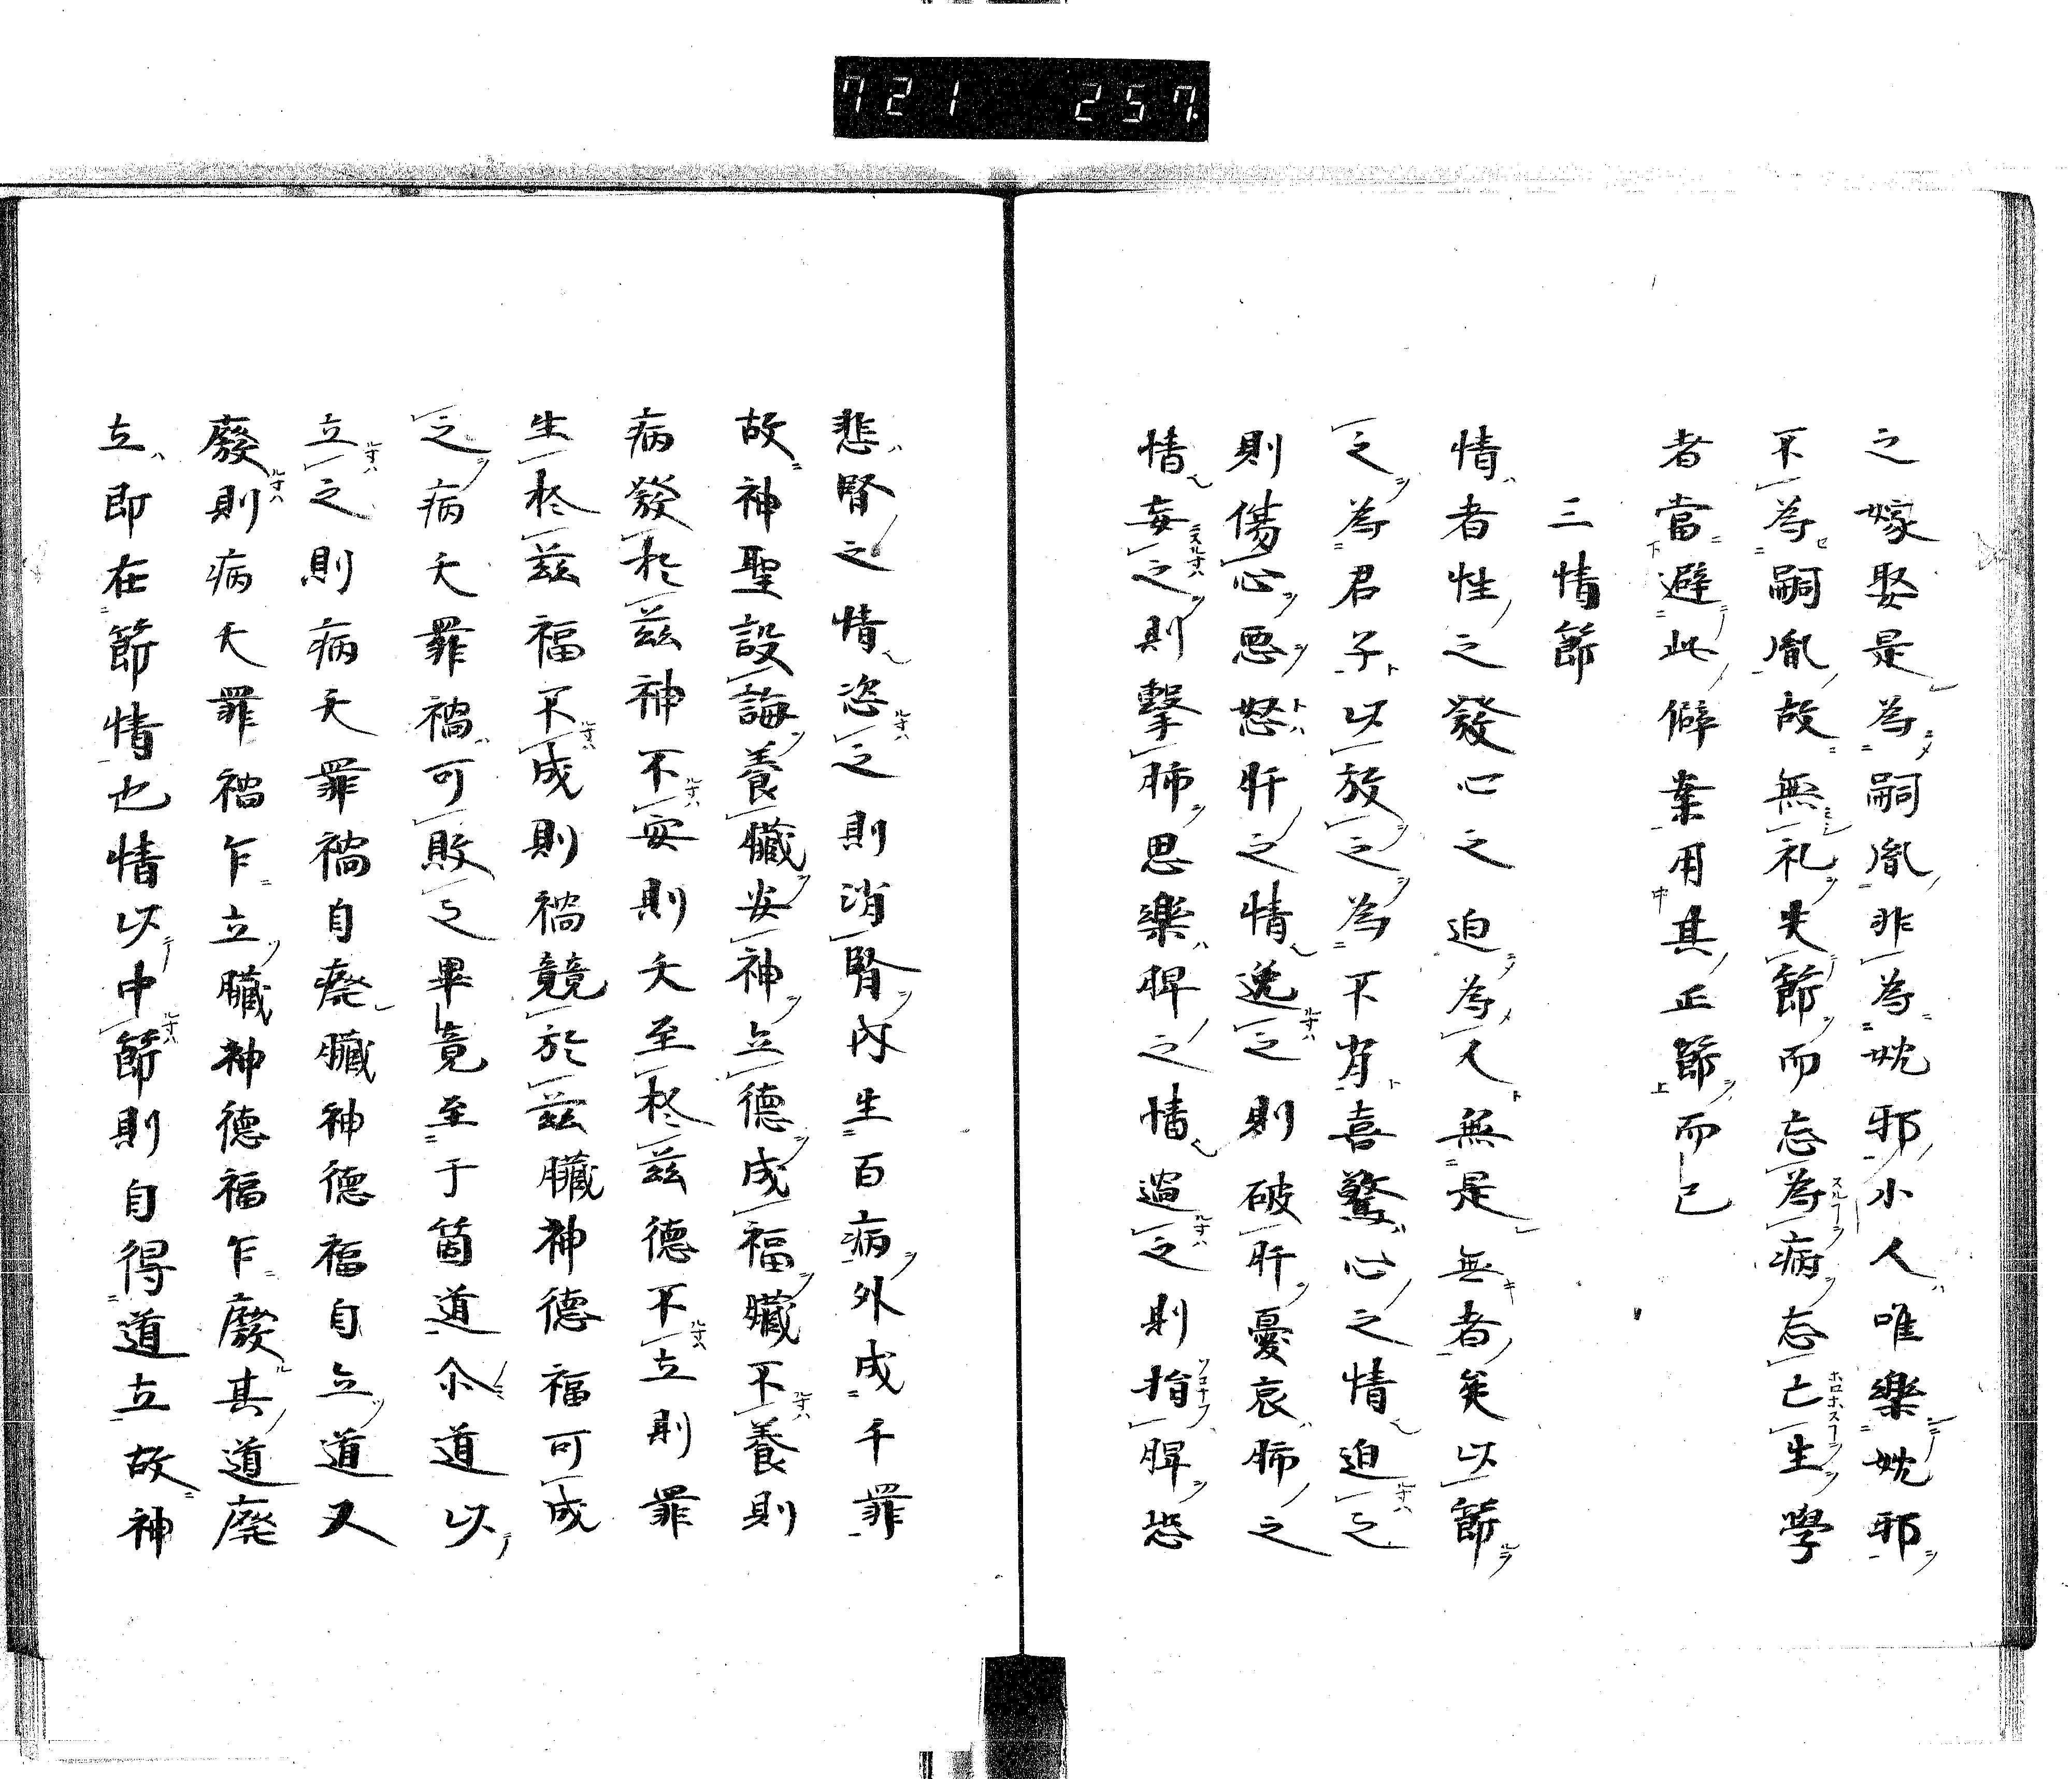 721 257
之嫁娶是為嗣胤非為妉邪小人唯樂妉邪
不為嗣胤故無礼失節而忘為病忘亡生學
者當避此僻棄用其正節而已
三情節
情者性之發心之迫為人無是無者矣以節
之為君子以放之為不肖喜驚心之情迫之
則傷心惡怒肝之情逸之則破肝憂哀肺之
情妄之則擊肺思樂脾之情過之則指脾恐
悲腎之情恣之則消腎內生百病外成千罪
故神聖設誨養臓安神立德成福臓不養則
病發於茲神不安則夭至於茲德不立則罪
生於茲福不成則禍競於茲臓神德福可成
之病夭罪禍可敗之畢竟至于箇道尒道以
立之則病夭罪禍自廃臓神德福自立道又
廢則病夭罪禍乍立臓神德福乍廢其道廃
立即在節情也情以中節則自得道立故神